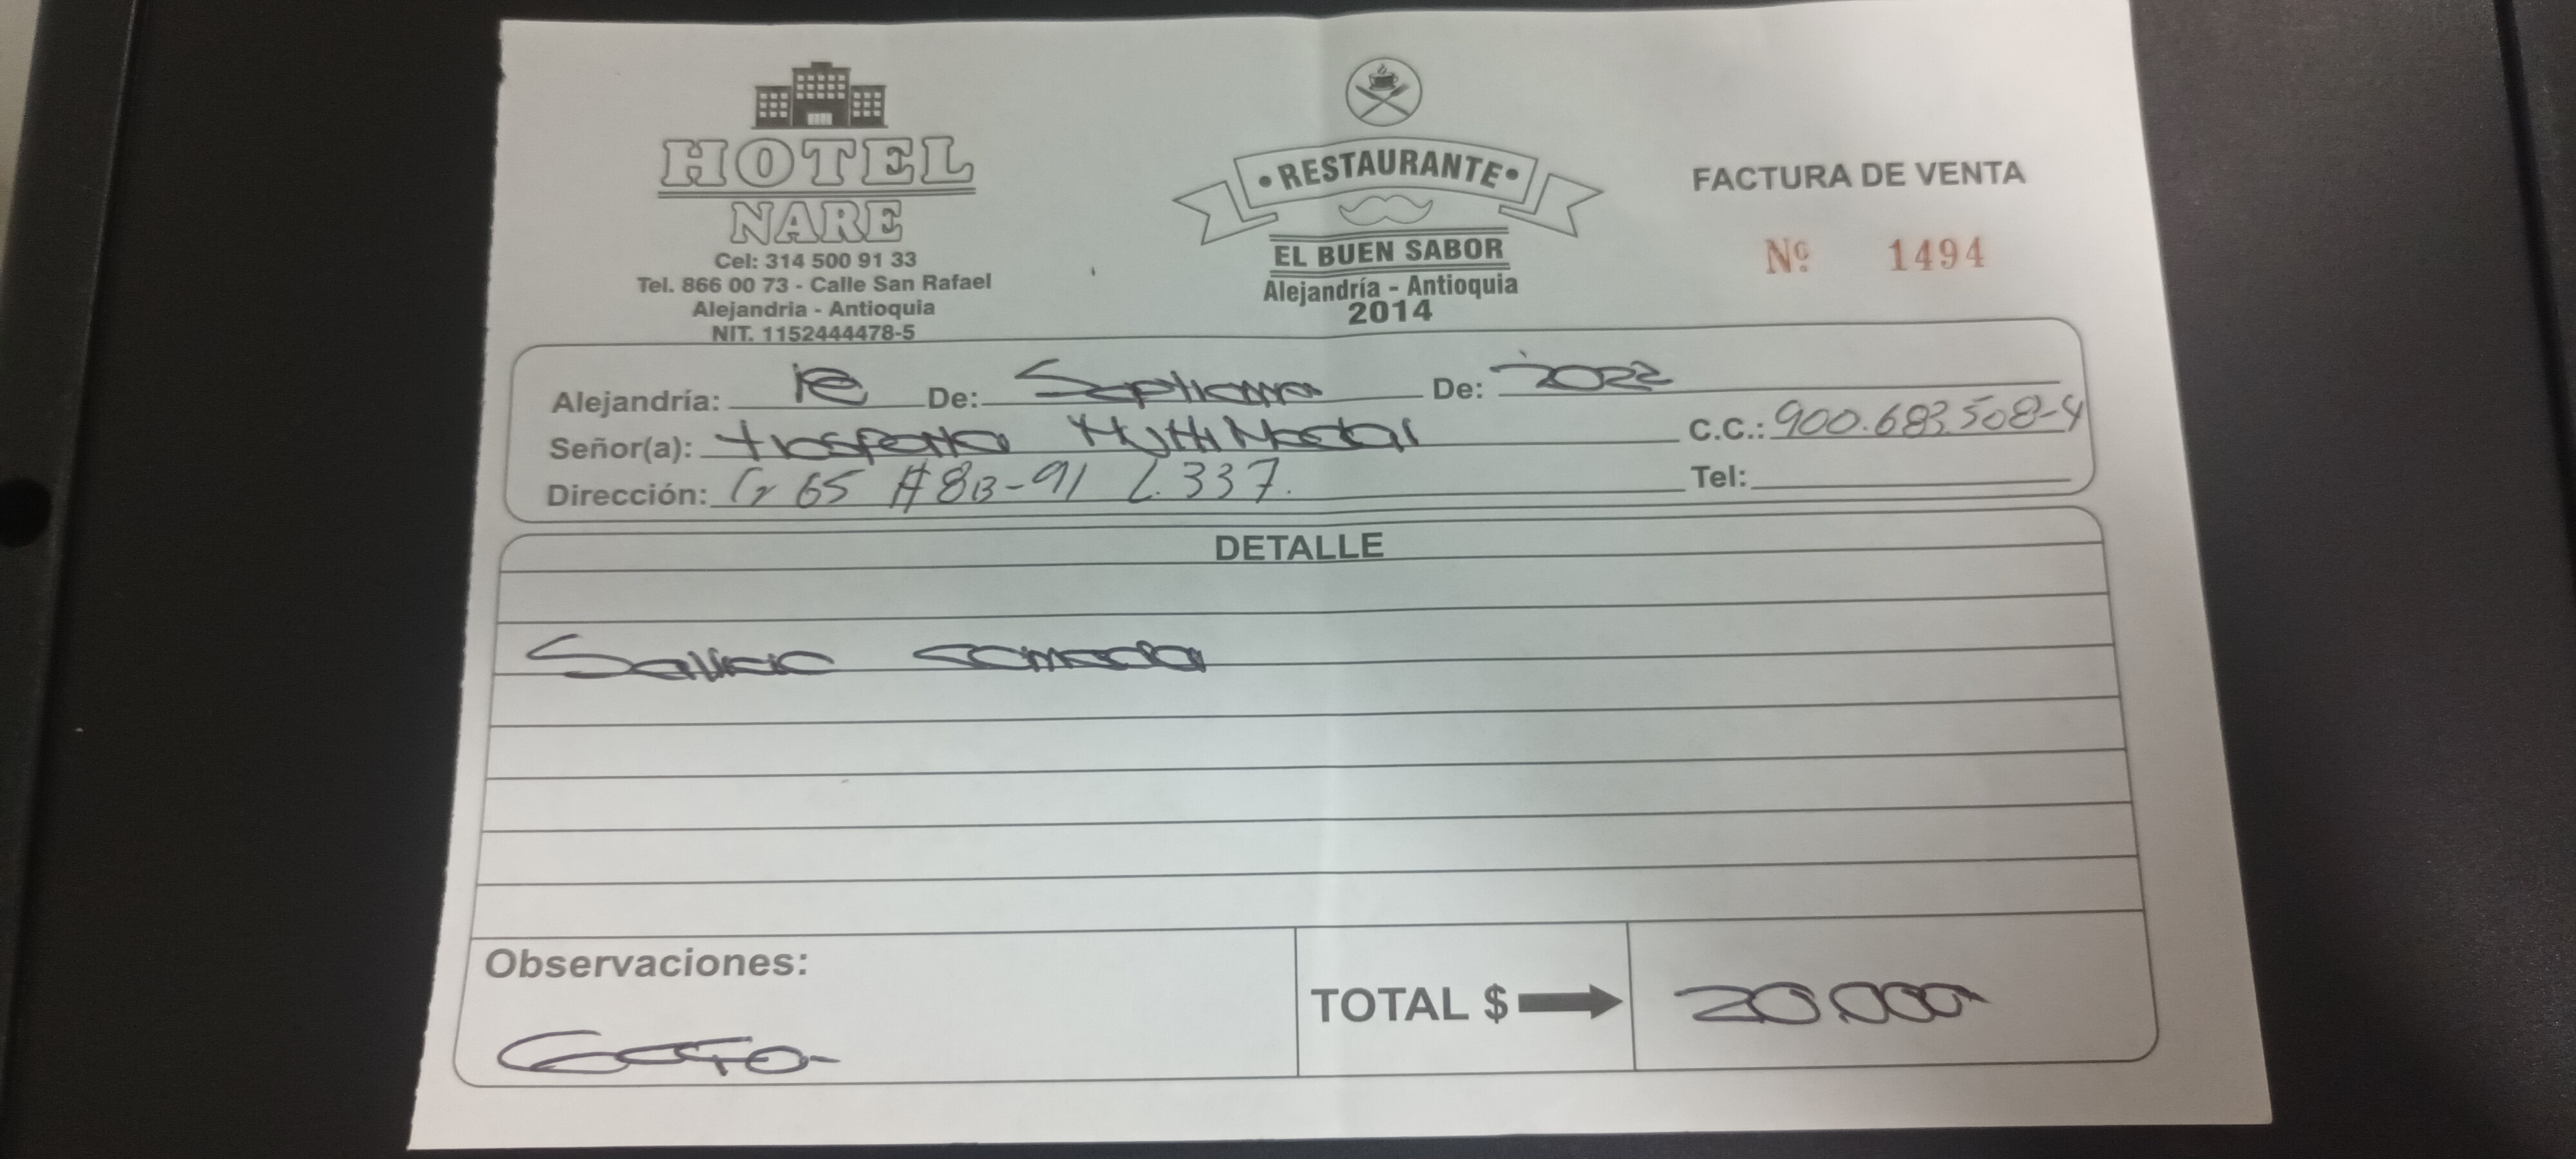 HOTEL
NARE
Cel: 314 500 91 33
Tel. 866 00 73 - Calle San Rafael
Alejandria - Antioquia
NIT. 1152444478-5
• RESTAURANTE •
EL BUEN SABOR
Alejandría - Antioquia
2014
FACTURA DE VENTA
Nº 1494
Alejandría: De: De: 2022
Señor(a): C.C.: 900.683.508-4
Dirección: Cr 65 #8B-91 L.337.
Tel:
DETALLE
Servicio comedor
Observaciones:
TOTAL $ 20.000